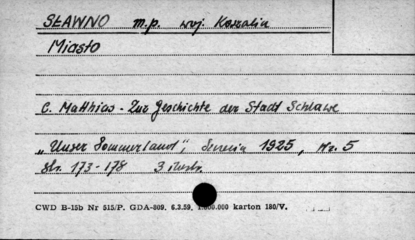 SŁAWNO m.p. woj. Koszalin
Miasto
C. Matthias - Zur Geschichte der Stadt Schlawe
„Unser Pommerland", 1925, Nr. 5
Str. 173-178 3 ilustr.
CWD B-15b Nr 515/P. GDA-809. 6.3.59. 1.500.000 karton 180/V.